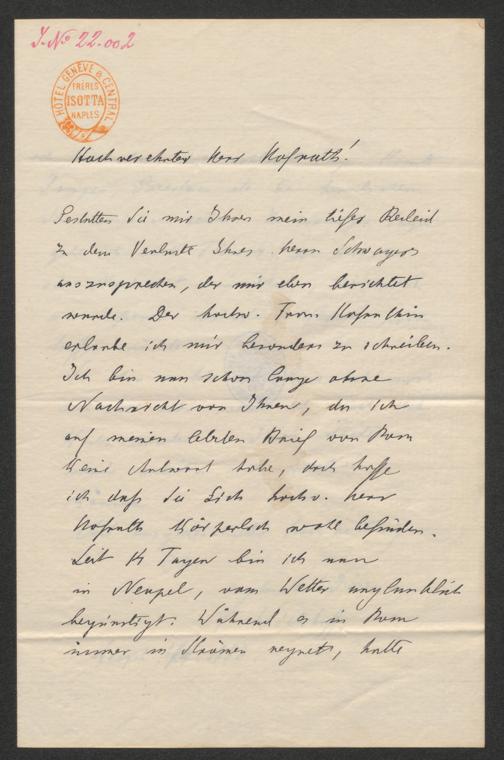 J. № 22.002
HOTEL GENÈVE & CENTRAL
FRÈRES
ISOTTA
NAPLES
Hochverehrter Herr Hofrath!
Gestatten Sie mir Ihnen mein tiefes Beileid
zu dem Verluste Ihres Herrn Schwagers
auszusprechen, der mir eben berichtet
wurde. Der hochv. Frau Hofräthin
erlaube ich mir besonders zu schreiben.
Ich bin nun schon lange ohne
Nachricht von Ihnen, da ich
auf meinen letzten Brief von Rom
keine Antwort habe, doch hoffe
ich daß Sie Sich hochv. Herr
Hofrath körperlich wohl befinden.
Seit 14 Tagen bin ich nun
in Neapel, vom Wetter unglaublich
begünstigt. Während es in Rom
immer in Strömen regnete, hatte